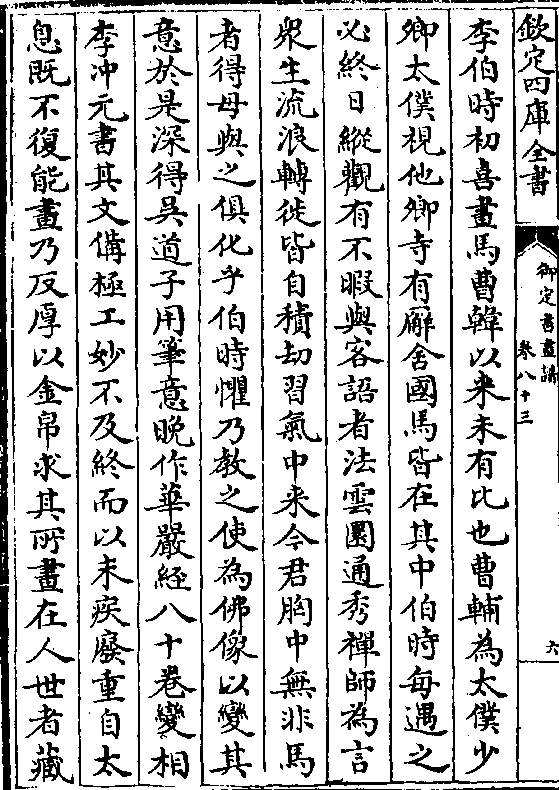 欽定四庫全書
御定書畫譜
卷八十三
六
李伯時初喜畫馬曹韓以来未有比也曹輔為太僕少
卿太僕視他卿寺有廨舍國馬皆在其中伯時每過之
必終日縱觀有不暇與客語者法雲圜通秀禪師為言
衆生流浪轉徙皆自積劫習氣中来今君胸中無非馬
者得毋與之俱化乎伯時懼乃教之使為佛像以變其
意於是深得吳道子用筆意晚作華嚴經八十卷變相
李冲元書其文備極工妙不及終而以末疾廢重自太
息既不復能畫乃反厚以金帛求其所畫在人世者藏